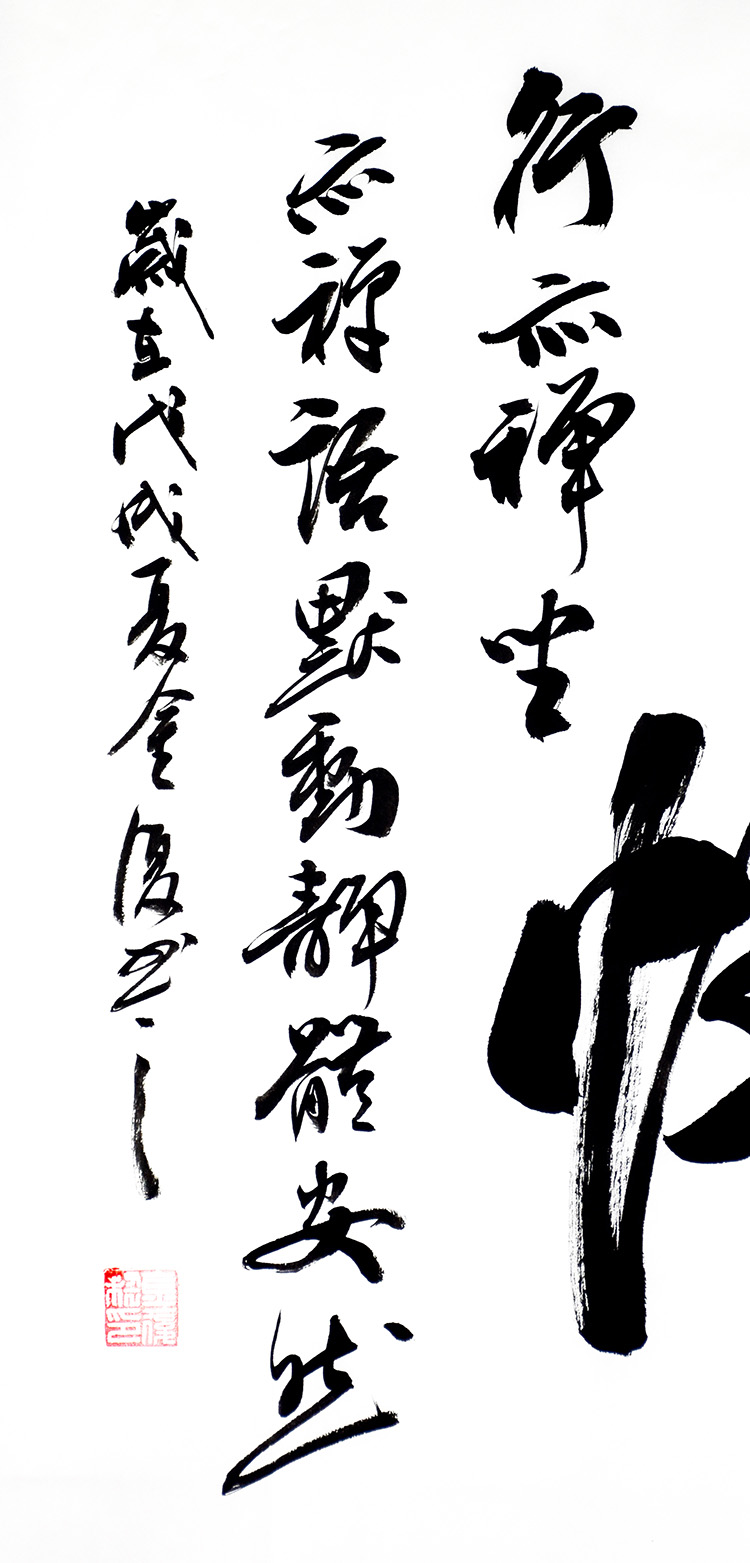 行亦禪坐
亦禪語默動靜體安然
歲在戊戌夏金復书之